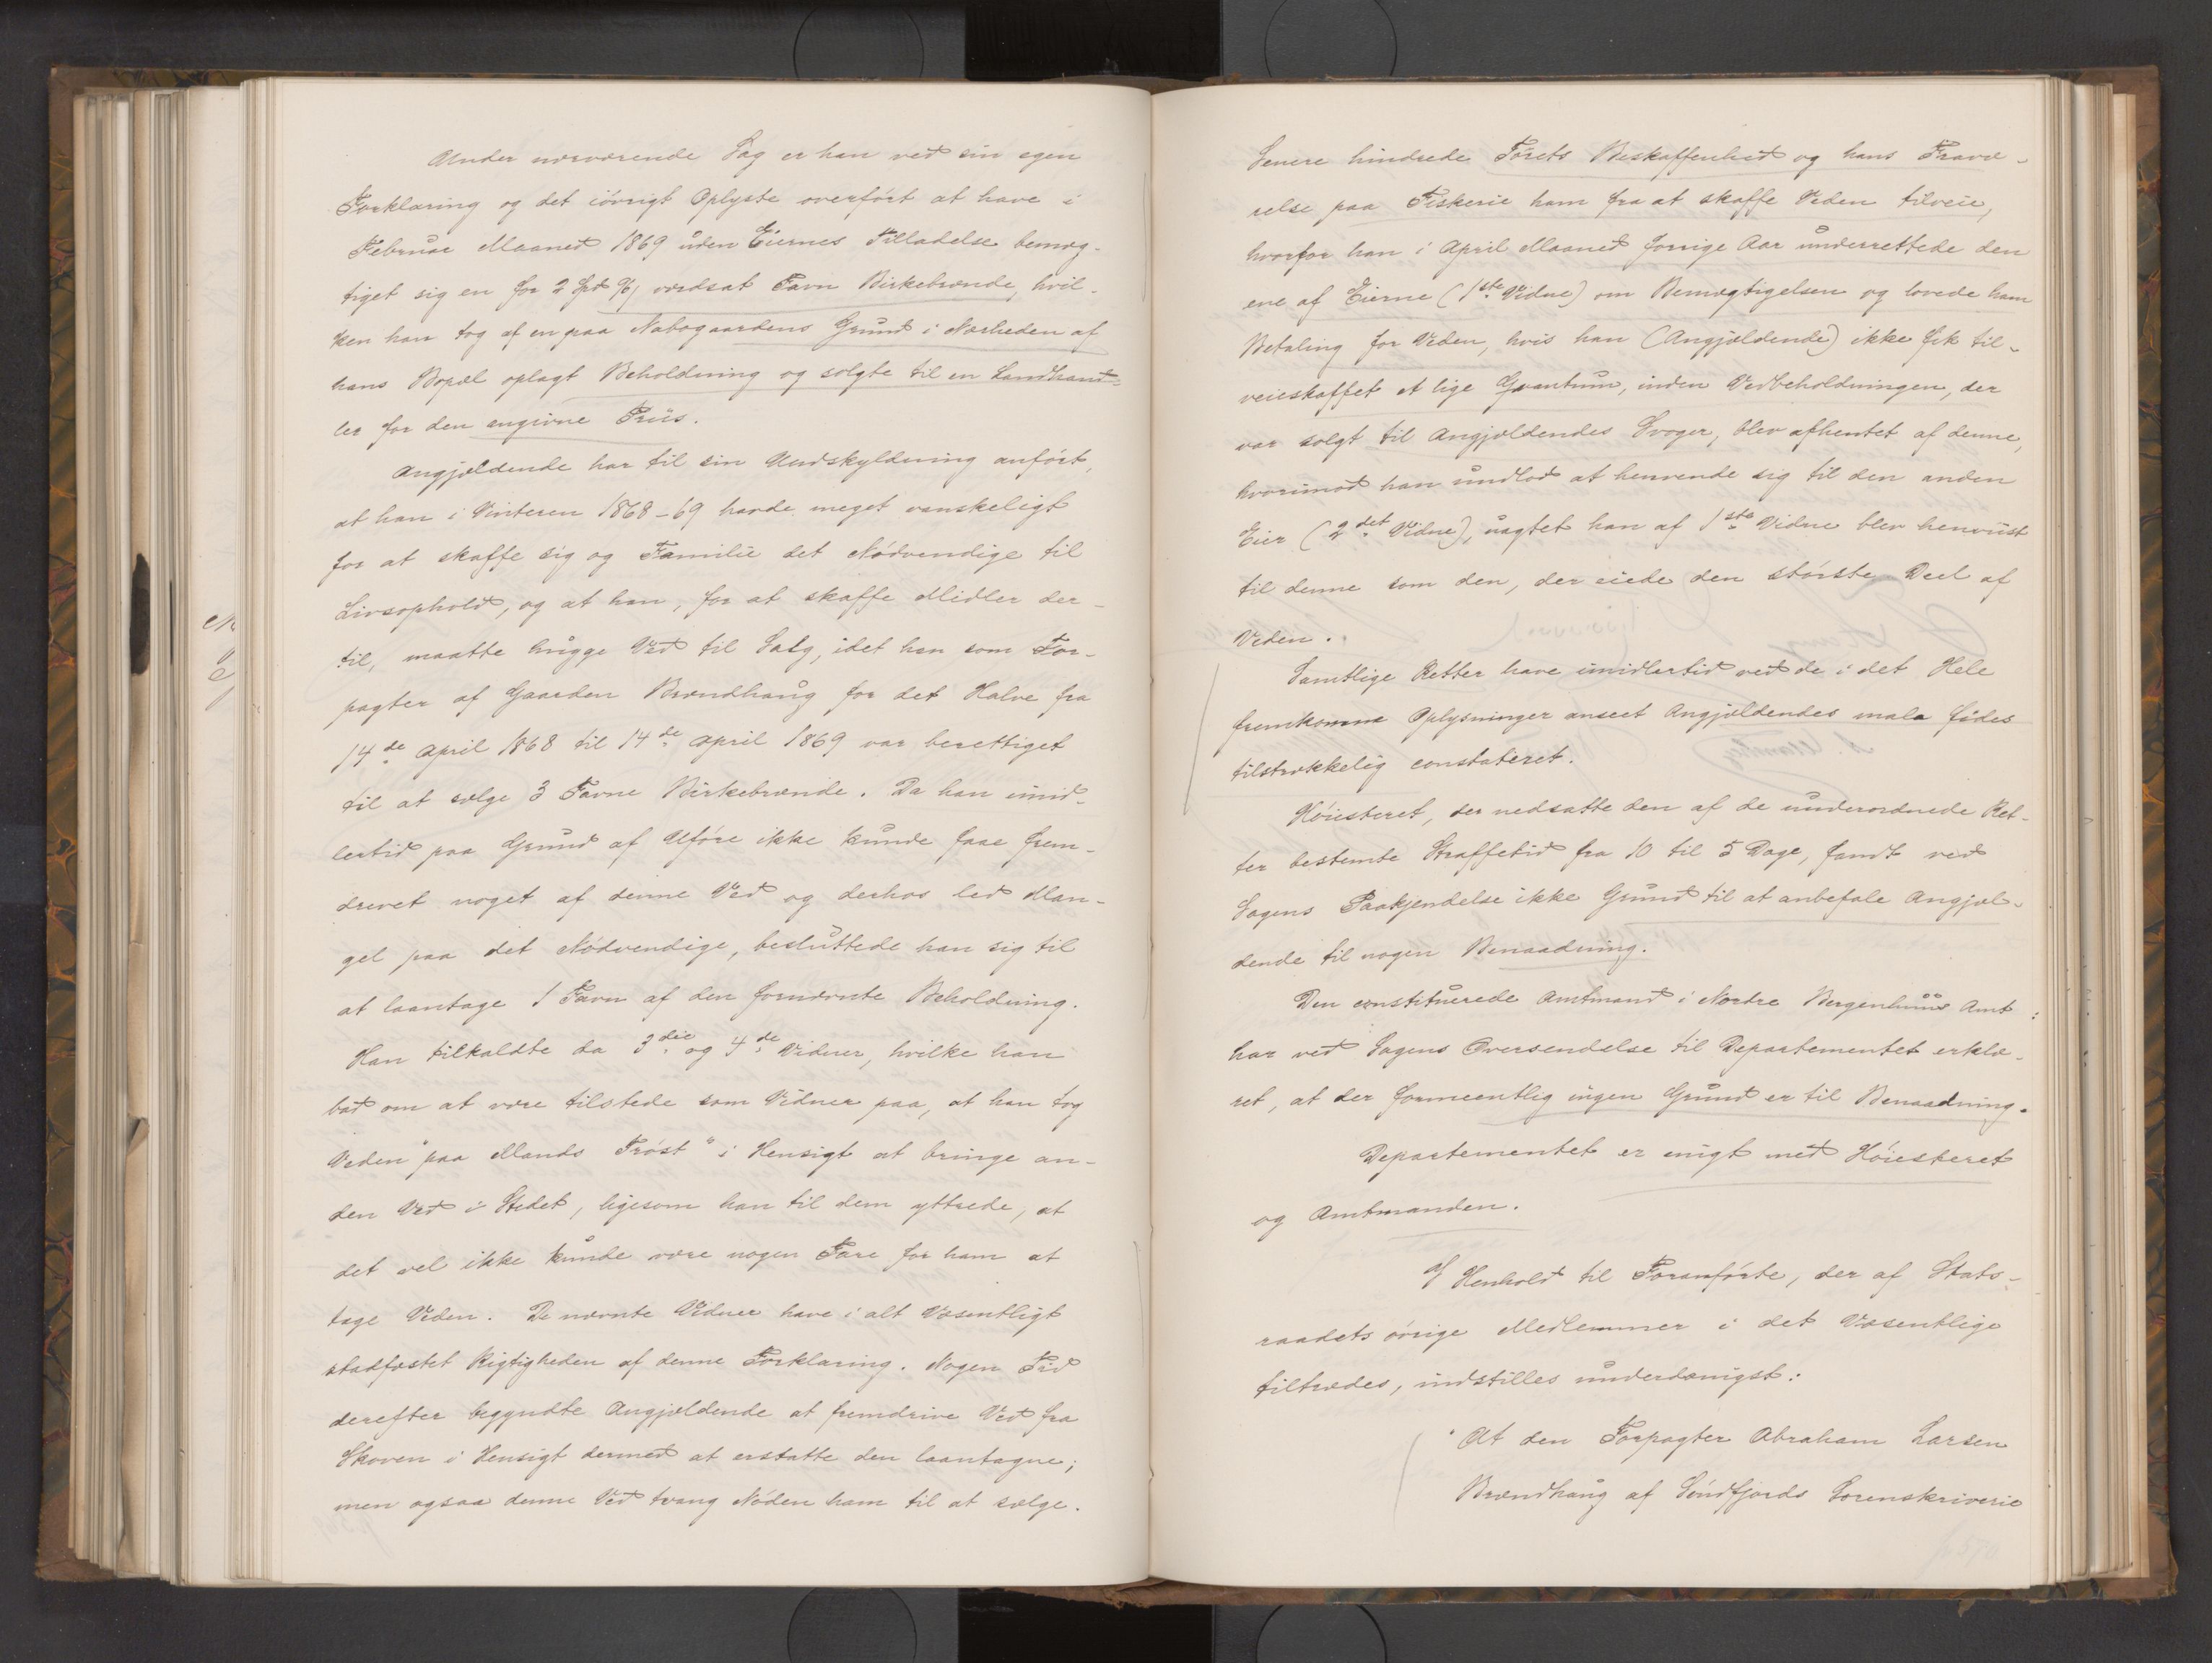 Under nærværende Sag er han ved sin egen
Forklaring og det iövrigt Oplyste overfört at have i
Februar Maaned 1869 uden Eiernes Tilladelse bemæg-
tiget sig en for 2 Spd værdsat Favn Birkebrænde, hvil-
ken han tog af en paa Nabogaardens Grund i Nærheden af
hans Bopæl oplagt Beholdning og solgte til en Landhand-
ler for den angivne Priis.
Angjældende har til sin Undskyldning anfört,
at han i Vinteren 1868-69 havde meget vanskeligt
for at skaffe sig og Familie det Nödvendige til
Livsophold, og at han, for at skaffe Midler der-
til, maatte hugge Ved til Salg, idet han som For-
pagter af Gaarden Brændhaug for det Halve fra
14de April 1868 til 14de April 1869 var berettiget
til at sælge 3 Favne Birkebrænde. Da han imid-
lertid paa Grund af Uföre ikke kunde faae frem-
drevet noget af denne Ved og derhos led Man-
gel paa det Nödvendige, besluttede han sig til
at laantage 1 Favn af den fornævnte Beholdning.
Han tilkaldte da 3die og 4de Vidner, hvilke han
bad om at være tilstede som Vidner paa, at han tog
Veden "paa Mands Tröst" i Hensigt at bringe an-
den Ved i Stedet, ligesom han til dem yttrede, at
det vel ikke kunde være nogen Fare for ham at
tage Veden. De nævnte Vidner have i alt Væsentligt
stadfæstet Rigtigheden af denne Forklaring. Nogen Tid
derefter begyndte Angjældende at fremdrive Ved fra
Skoven i Hensigt dermed at erstatte den laantagne;
men ogsaa denne Ved tvang Nöden ham til at sælge.
Senere hindrede Förets Beskaffenhed og hans Fravæ-
relse paa Fiskerie ham fra at skaffe Veden tilveie,
hvorfor han i April Maaned forrige Aar underrettede den
ene af Eierne (1ste Vidne) om Bemægtigelsen og lovede ham
Betaling for Veden, hvis han (Angjældende) ikke fik til-
veieskaffet et lige Qvantum, inden Vedbeholdningen, der
var solgt til Angjældendes Svoger, blev afhentet af denne,
hvorimod han undlod at henvende sig til den anden
Eier (2det Vidne), uagtet han af 1ste Vidne blev henviist
til denne som den, der eiede den störste Deel af
Veden.
Samtlige Retter have imidlertid ved de i det Hele
fremkomne Oplysninger anseet Angjældendes mala fides
tilstrækkelig constateret.
Höiesteret, der nedsatte den af de underordnede Ret-
ter bestemte Straffetid fra 10 til 5 Dage, fandt ved
Sagens Paakjendelse ikke Grund til at anbefale Angjæl-
dende til nogen Benaadning.
Den constituerede Amtmand i Nordre Bergenhuus Amt
har ved Sagens Oversendelse til Departementet erklæ-
ret, at der formeentlig ingen Grund er til Benaadning.
Departementet er enigt med Höiesteret
og Amtmanden.
I Henhold til Foranförte, der af Stats-
raadets övrige Medlemmer i det Væsentlige
tiltrædes, indstilles underdanigst:
"At den Forpagter Abraham Larsen
Brændhaug af Söndfjords Sorenskriverie